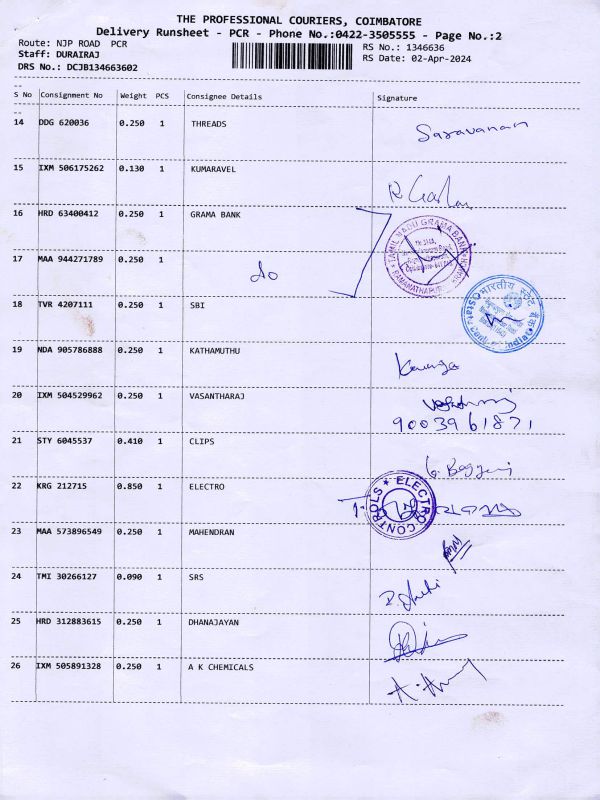 THE PROFESSIONAL COURIERS, COIMBATORE
Delivery Runsheet - PCR - Phone No.:0422-3505555 - Page No.:2
Route: NJP ROAD PCR
RS No.: 1346636
Staff: DURAIRAJ
RS Date: 02-Apr-2024
DRS No.: DCJB134663602
S No Consignment No Weight PCS Consignee Details Signature
14 DDG 620036 0.250 1 THREADS Saravanan
15 IXM 506175262 0.130 1 KUMARAVEL
16 HRD 63400412 0.250 1 GRAMA BANK
TAMIL NADU GRAMA BANK
RAMANATHAPURAM BRANCH
17 MAA 944271789 0.250 1 do
18 TVR 4207111 0.250 1 SBI
भारतीय स्टेट बैंक
State Bank of India
19 NDA 905786888 0.250 1 KATHAMUTHU
20 IXM 504529962 0.250 1 VASANTHARAJ
9003961871
21 STY 6045537 0.410 1 CLIPS
22 KRG 212715 0.850 1 ELECTRO
ELECTRO CONTROLS
23 MAA 573896549 0.250 1 MAHENDRAN
24 TMI 30266127 0.090 1 SRS
25 HRD 312883615 0.250 1 DHANAJAYAN
26 IXM 505891328 0.250 1 A K CHEMICALS